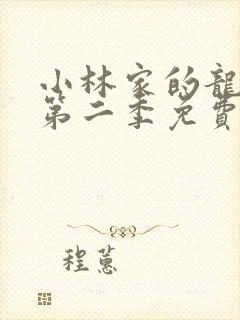 小林家的龍
第二季免費
程蕙